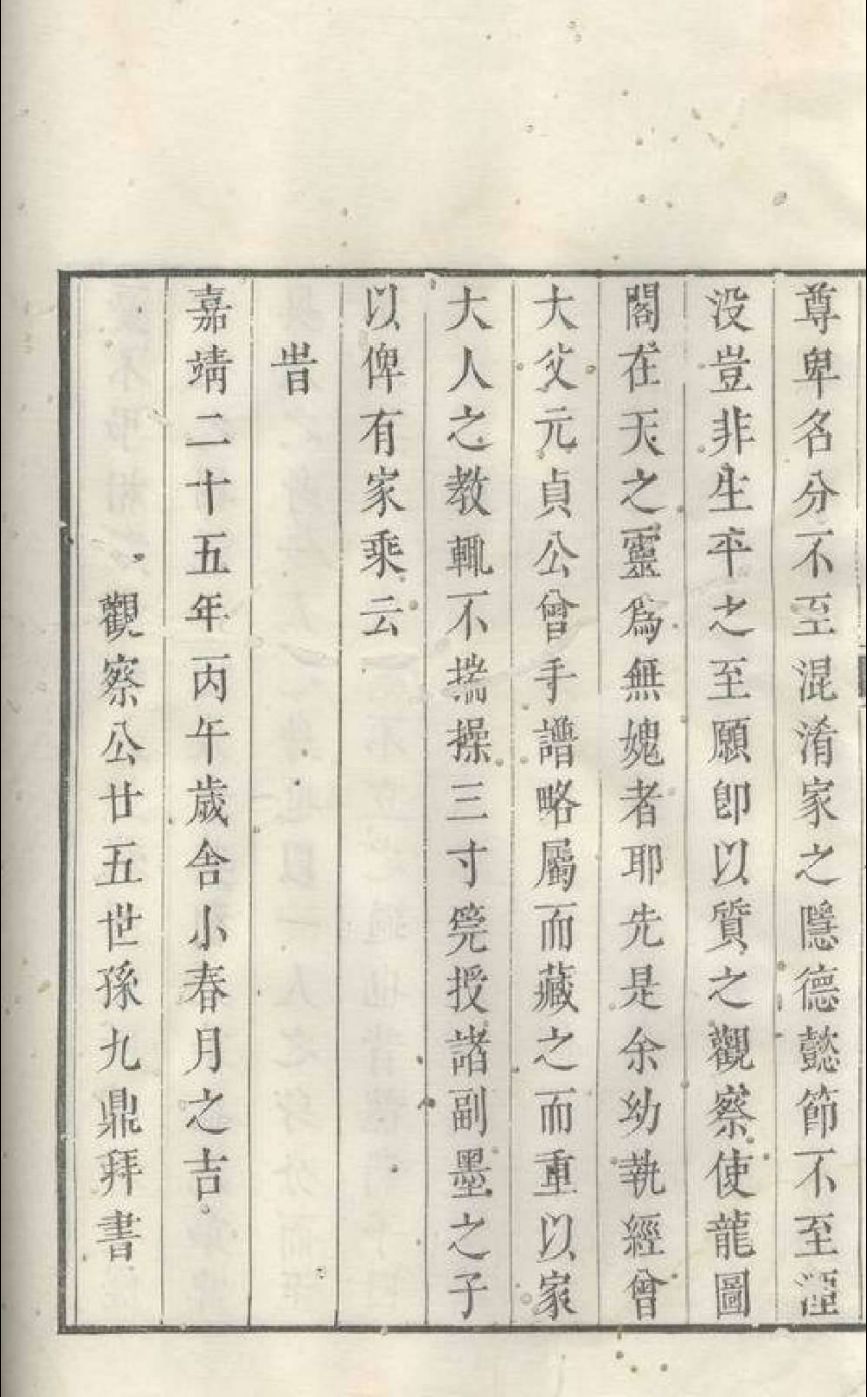 尊卑名分不至混淆家之隱德懿節不至湮
没豈非生平之至願卽以質之觀察使龍圖
閣在天之靈爲無媿者耶先是余幼執經曾
大父元貞公曾手譜略屬而藏之而重以家
大人之教輒不揣操三寸筦授諸副墨之子
以俾有家乘云
旹
嘉靖二十五年丙午歲舍小春月之吉
觀察公廿五世孫九鼎拜書